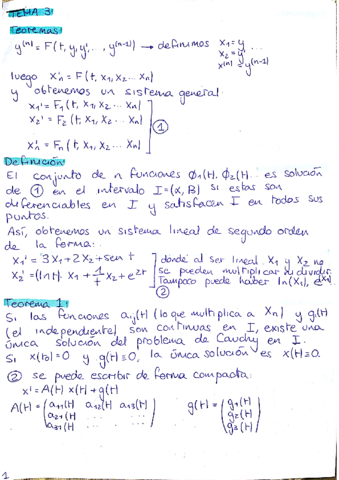 TEMA 3:
Teoremas:
y⁽ⁿ⁾ = F(t, y, y', ..., y⁽ⁿ⁻¹⁾ → definimos x₁ = y ...
x₂ = y'
x⁽ⁿ⁾ = y⁽ⁿ⁻¹⁾
luego x'n = F(t, x₁, x₂ ... xn)
y obtenemos un sistema general:
x₁' = F₁(t, x₁, x₂ ... xn)
x₂' = F₂(t, x₁, x₂ ... xn)
...
①
x'n = Fn(t, x₁, x₂ ... xn)
Definición
El conjunto de n funciones Ø₁(t), Ø₂(t)... es solución
de ① en el intervalo I=(α, B) si estas son
diferenciables en I y satisfacen I en todos sus
puntos.
Así, obtenemos un sistema lineal de segundo orden
de la forma:
x₁' = 3x₁ + 2x₂ + sen t
donde al ser lineal x₁ y x₂ no
x₂' = (ln t) · x₁ + 1/t x₂ + e²ᵗ
se pueden multiplicar ni dividir.
Tampoco puede haber ln(x₁), eˣ¹
②
Teorema 1:
Si las funciones aij(t) (lo que multiplica a xn) y g(t)
(el independiente) son continuas en I, existe una
única solución del problema de Cauchy en I.
Si x(t0)=0 y g(t)=0, la única solución es x(t)=0.
② se puede escribir de forma compacta:
x' = A(t) x(t) + g(t)
A(t) = (a₁₁(t) a₁₂(t) a₁₃(t)
a₂₁(t) ... ...
a₃₁(t) ... ...)
g(t) = (g₁(t)
g₂(t)
g₃(t))
1